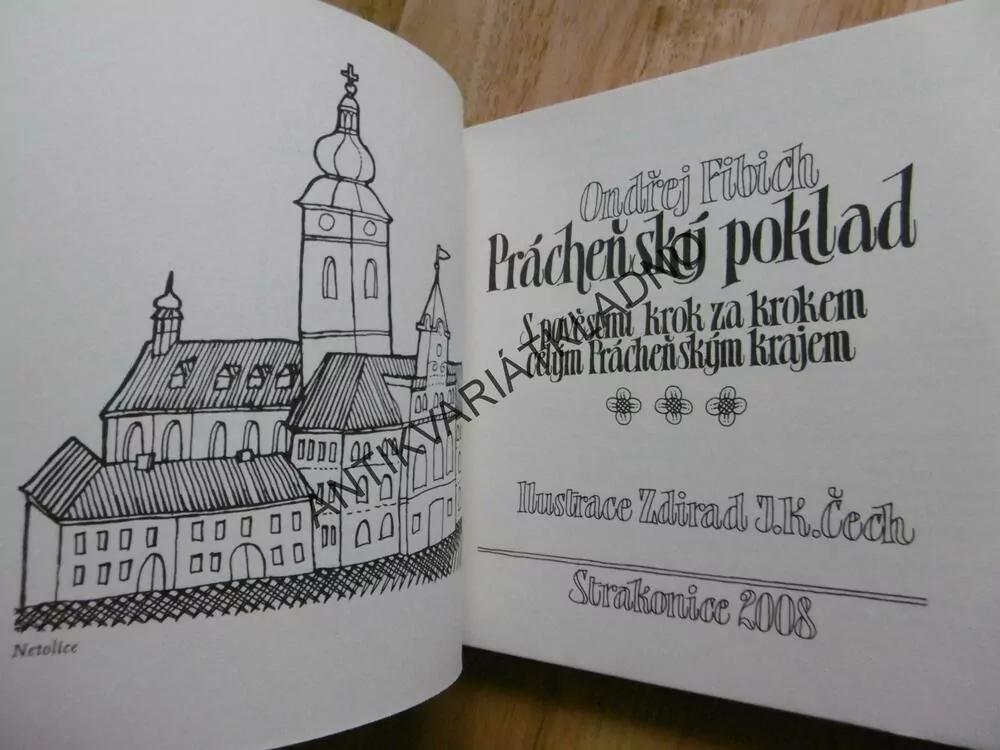 Netolice
Ondřej Fibich
Prácheňský poklad
S pověstmi krok za krokem
celým Prácheňským krajem
Ilustrace Zdirad J.K.Čech
Strakonice 2008
ANTIKVARIÁT KLADNO